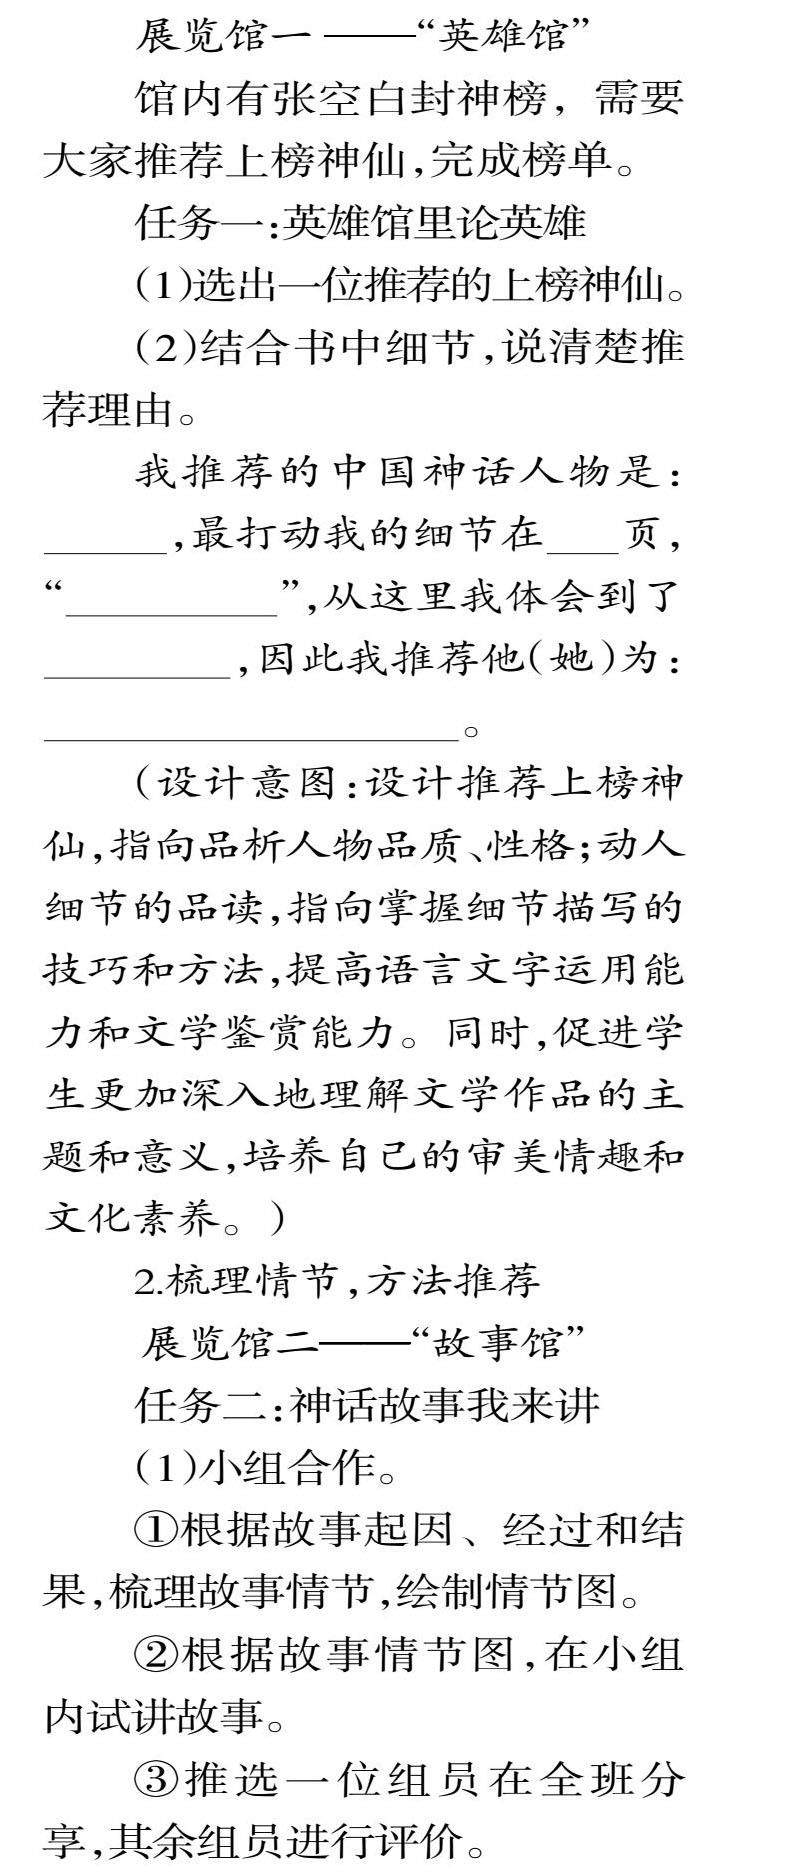 展览馆一 ——“英雄馆”
馆内有张空白封神榜，需要
大家推荐上榜神仙,完成榜单。
任务一:英雄馆里论英雄
(1)选出一位推荐的上榜神仙。
(2)结合书中细节,说清楚推
荐理由。
我推荐的中国神话人物是:
______,最打动我的细节在___页,
“__________”,从这里我体会到了
_________,因此我推荐他(她)为:
____________________。
(设计意图:设计推荐上榜神
仙,指向品析人物品质、性格;动人
细节的品读,指向掌握细节描写的
技巧和方法,提高语言文字运用能
力和文学鉴赏能力。同时,促进学
生更加深入地理解文学作品的主
题和意义,培养自己的审美情趣和
文化素养。)
2.梳理情节,方法推荐
展览馆二——“故事馆”
任务二:神话故事我来讲
(1)小组合作。
①根据故事起因、经过和结
果,梳理故事情节,绘制情节图。
②根据故事情节图,在小组
内试讲故事。
③推选一位组员在全班分
享,其余组员进行评价。